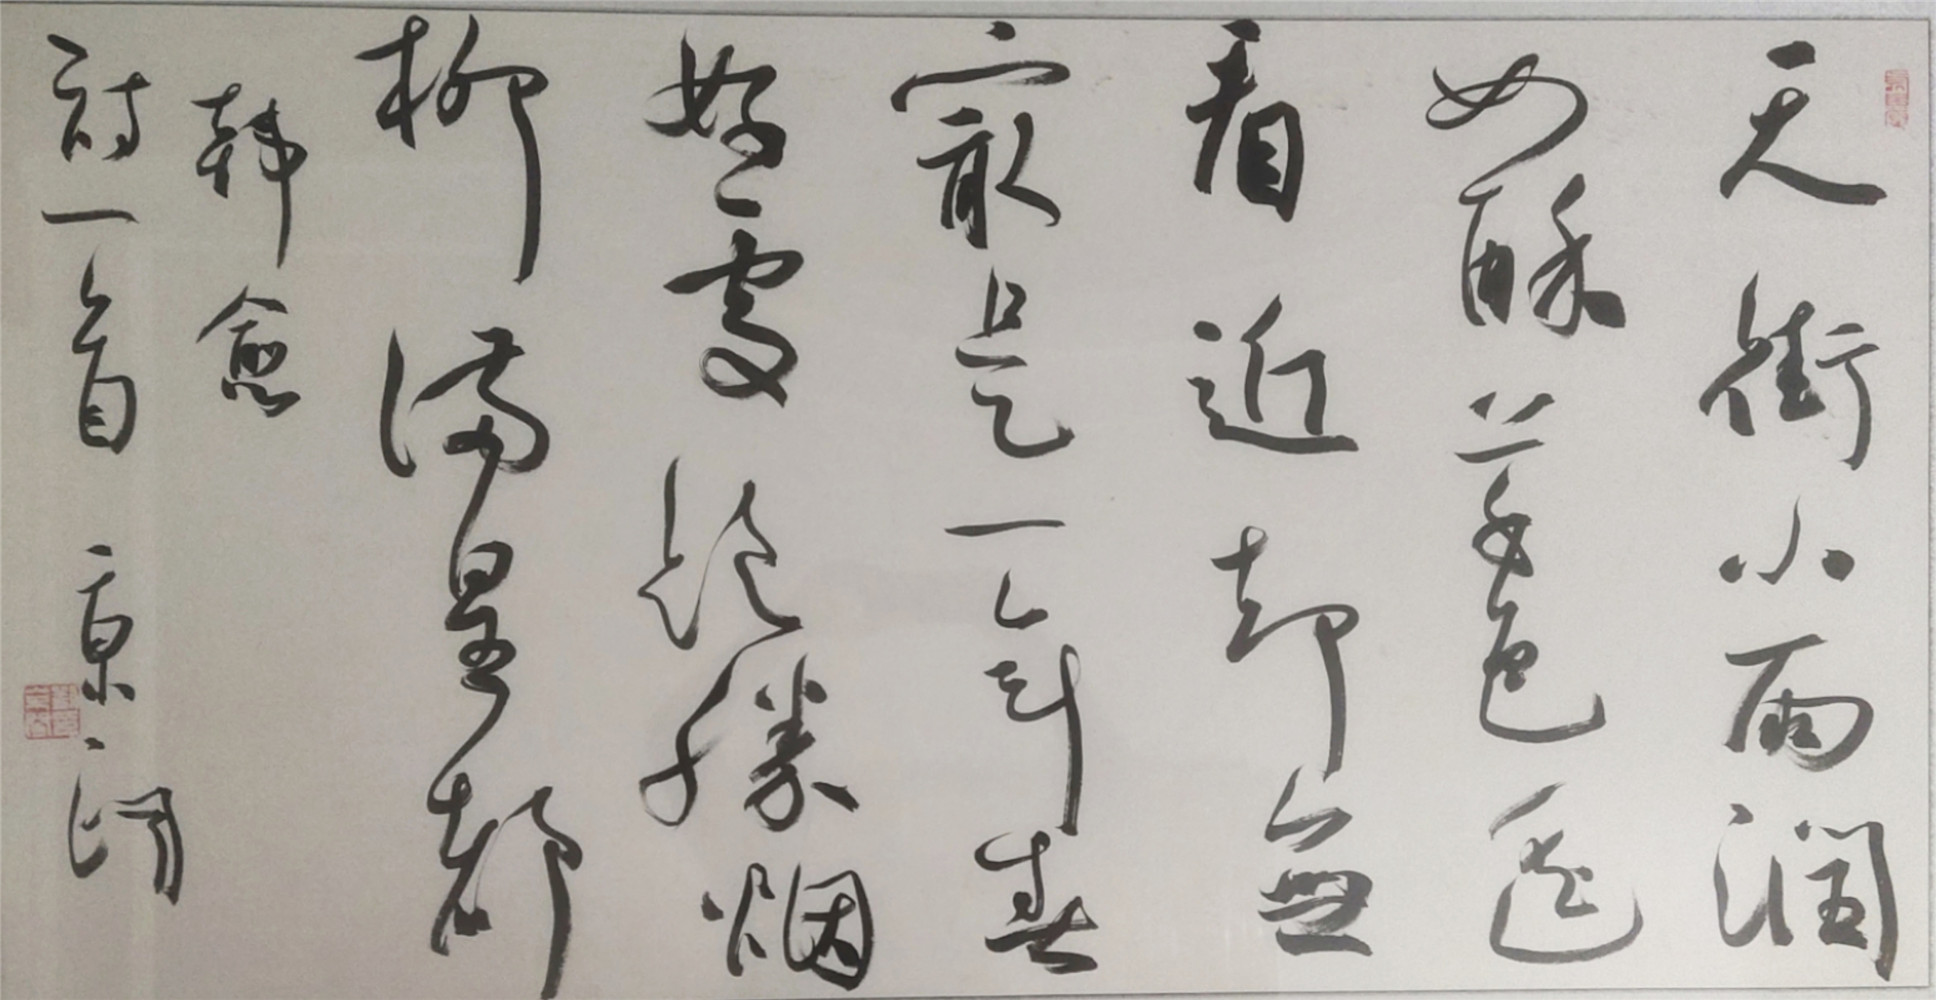 天街小雨潤
如酥草色遥
看近却無
最是一年春
好處絶勝烟
柳滿皇都
韓愈
詩一首